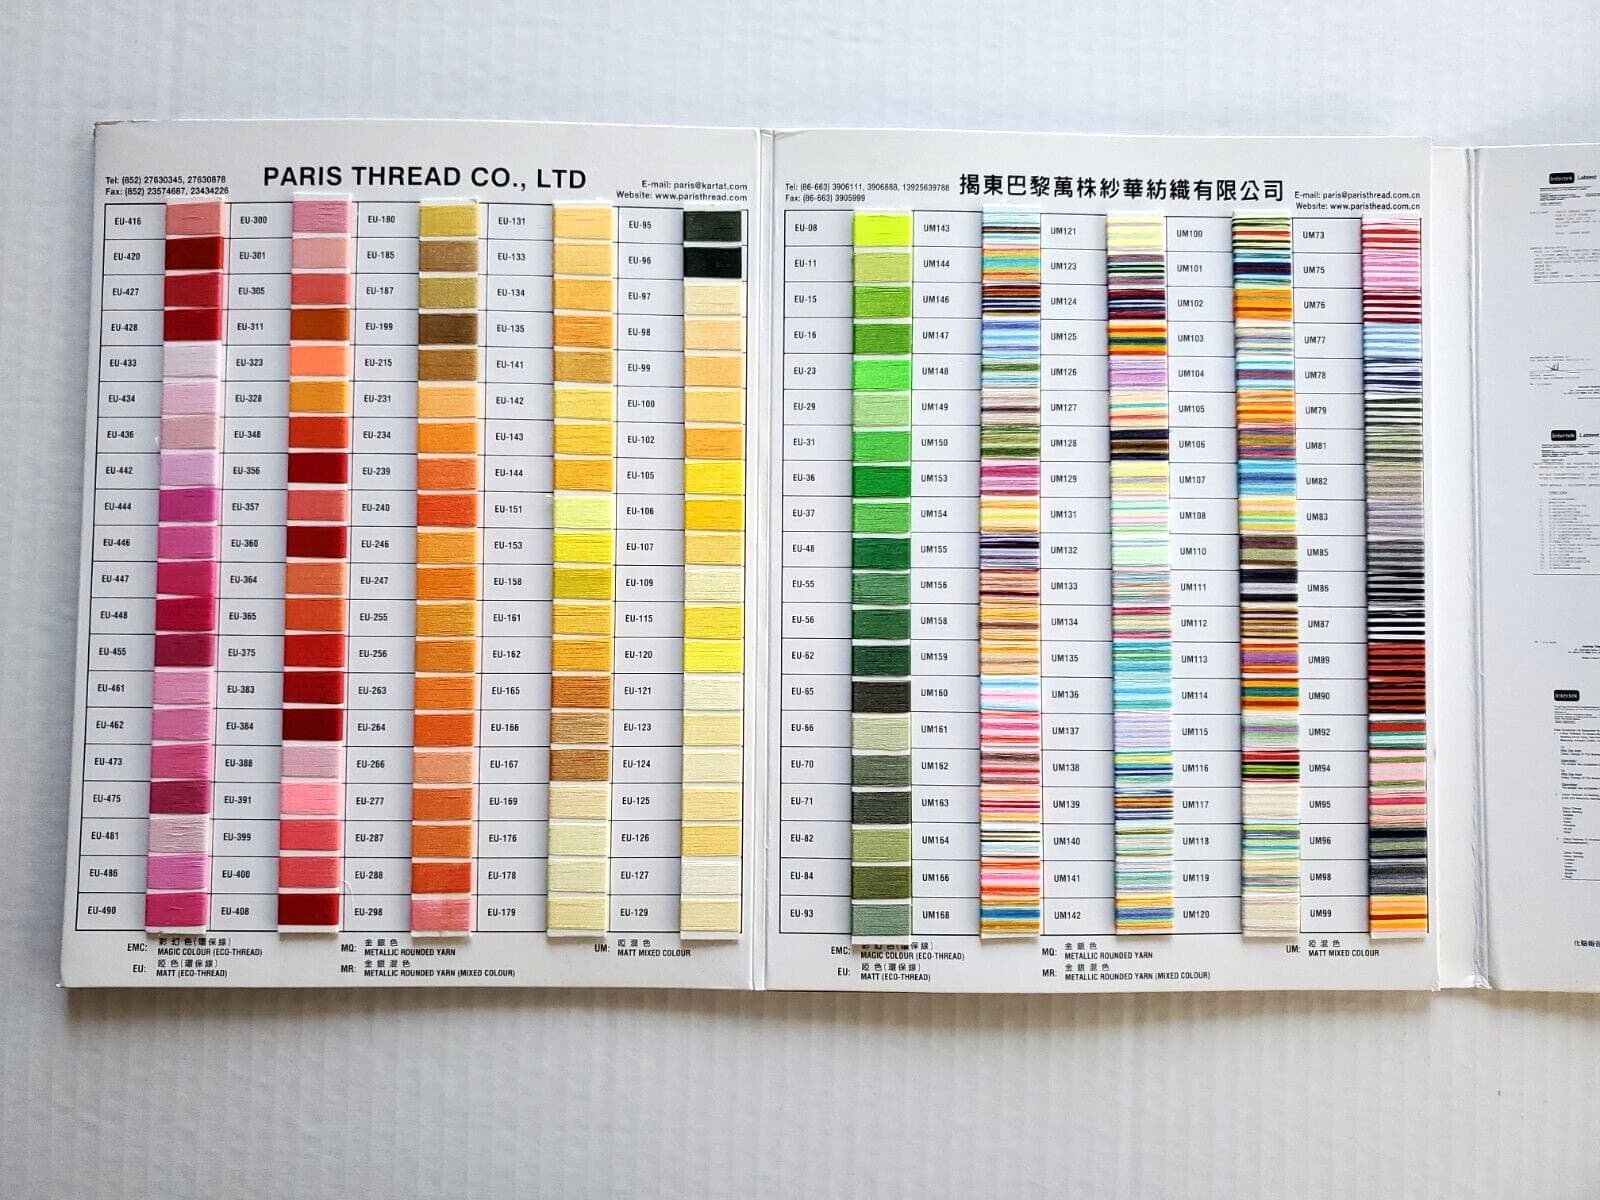 PARIS THREAD CO., LTD
Tel: (852) 27630345, 27630878
Fax: (852) 23574687, 23434226
E-mail: paris@kartat.com
Website: www.paristhread.com
EU-416 EU-300 EU-180 EU-131 EU-95
EU-420 EU-301 EU-185 EU-133 EU-96
EU-427 EU-305 EU-187 EU-134 EU-97
EU-428 EU-311 EU-199 EU-135 EU-98
EU-433 EU-323 EU-215 EU-141 EU-99
EU-434 EU-328 EU-231 EU-142 EU-100
EU-436 EU-348 EU-234 EU-143 EU-102
EU-442 EU-356 EU-239 EU-144 EU-105
EU-444 EU-357 EU-240 EU-151 EU-106
EU-446 EU-360 EU-246 EU-153 EU-107
EU-447 EU-364 EU-247 EU-158 EU-109
EU-448 EU-365 EU-255 EU-161 EU-115
EU-455 EU-375 EU-256 EU-162 EU-120
EU-461 EU-383 EU-263 EU-165 EU-121
EU-462 EU-384 EU-264 EU-166 EU-123
EU-473 EU-388 EU-266 EU-167 EU-124
EU-475 EU-391 EU-277 EU-169 EU-125
EU-481 EU-399 EU-287 EU-176 EU-126
EU-486 EU-400 EU-288 EU-178 EU-127
EU-490 EU-408 EU-298 EU-179 EU-129
EMC: 彩幻色(環保線)
MAGIC COLOUR (ECO-THREAD)
EU: 啞色(環保線)
MATT (ECO-THREAD)
MQ: 金銀色
METALLIC ROUNDED YARN
MR: 金銀混色
METALLIC ROUNDED YARN (MIXED COLOUR)
UM: 啞混色
MATT MIXED COLOUR
揭東巴黎萬株紗華紡織有限公司
Tel: (86-663) 3906111, 3906888, 13925639788
Fax: (86-663) 3905999
E-mail: paris@paristhread.com.cn
Website: www.paristhread.com.cn
EU-08 UM143 UM121 UM100 UM73
EU-11 UM144 UM123 UM101 UM75
EU-15 UM146 UM124 UM102 UM76
EU-16 UM147 UM125 UM103 UM77
EU-23 UM148 UM126 UM104 UM78
EU-29 UM149 UM127 UM105 UM79
EU-31 UM150 UM128 UM106 UM81
EU-36 UM153 UM129 UM107 UM82
EU-37 UM154 UM131 UM108 UM83
EU-48 UM155 UM132 UM110 UM85
EU-55 UM156 UM133 UM111 UM86
EU-56 UM158 UM134 UM112 UM87
EU-62 UM159 UM135 UM113 UM89
EU-65 UM160 UM136 UM114 UM90
EU-66 UM161 UM137 UM115 UM92
EU-70 UM162 UM138 UM116 UM94
EU-71 UM163 UM139 UM117 UM95
EU-82 UM164 UM140 UM118 UM96
EU-84 UM166 UM141 UM119 UM98
EU-93 UM168 UM142 UM120 UM99
EMC: 彩幻色(環保線)
MAGIC COLOUR (ECO-THREAD)
EU: 啞色(環保線)
MATT (ECO-THREAD)
MQ: 金銀色
METALLIC ROUNDED YARN
MR: 金銀混色
METALLIC ROUNDED YARN (MIXED COLOUR)
UM: 啞混色
MATT MIXED COLOUR
Intertek Labtest
Intertek Labtest
Intertek
化驗報告